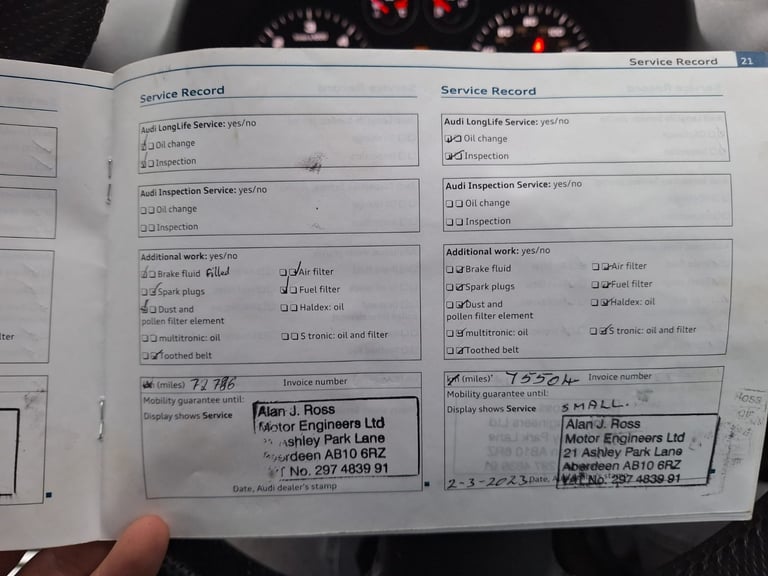 Service Record 21
Service Record
Audi LongLife Service: yes/no
Oil change
Inspection
Audi Inspection Service: yes/no
Oil change
Inspection
Additional work: yes/no
Brake fluid filled
Air filter
Spark plugs
Fuel filter
Dust and
pollen filter element
Haldex: oil
multitronic: oil
S tronic: oil and filter
Toothed belt
km (miles) 72786 Invoice number
Mobility guarantee until:
Display shows Service
Alan J. Ross
Motor Engineers Ltd
Ashley Park Lane
Aberdeen AB10 6RZ
No. 297 4839 91
Date, Audi dealer's stamp
Service Record
Audi LongLife Service: yes/no
Oil change
Inspection
Audi Inspection Service: yes/no
Oil change
Inspection
Additional work: yes/no
Brake fluid
Air filter
Spark plugs
Fuel filter
Dust and
pollen filter element
Haldex: oil
multitronic: oil
S tronic: oil and filter
Toothed belt
km (miles) 75504 Invoice number
Mobility guarantee until:
Display shows Service SMALL.
Alan J. Ross
Motor Engineers Ltd
21 Ashley Park Lane
Aberdeen AB10 6RZ
VAT No. 297 4839 91
2-3-2023 Date,